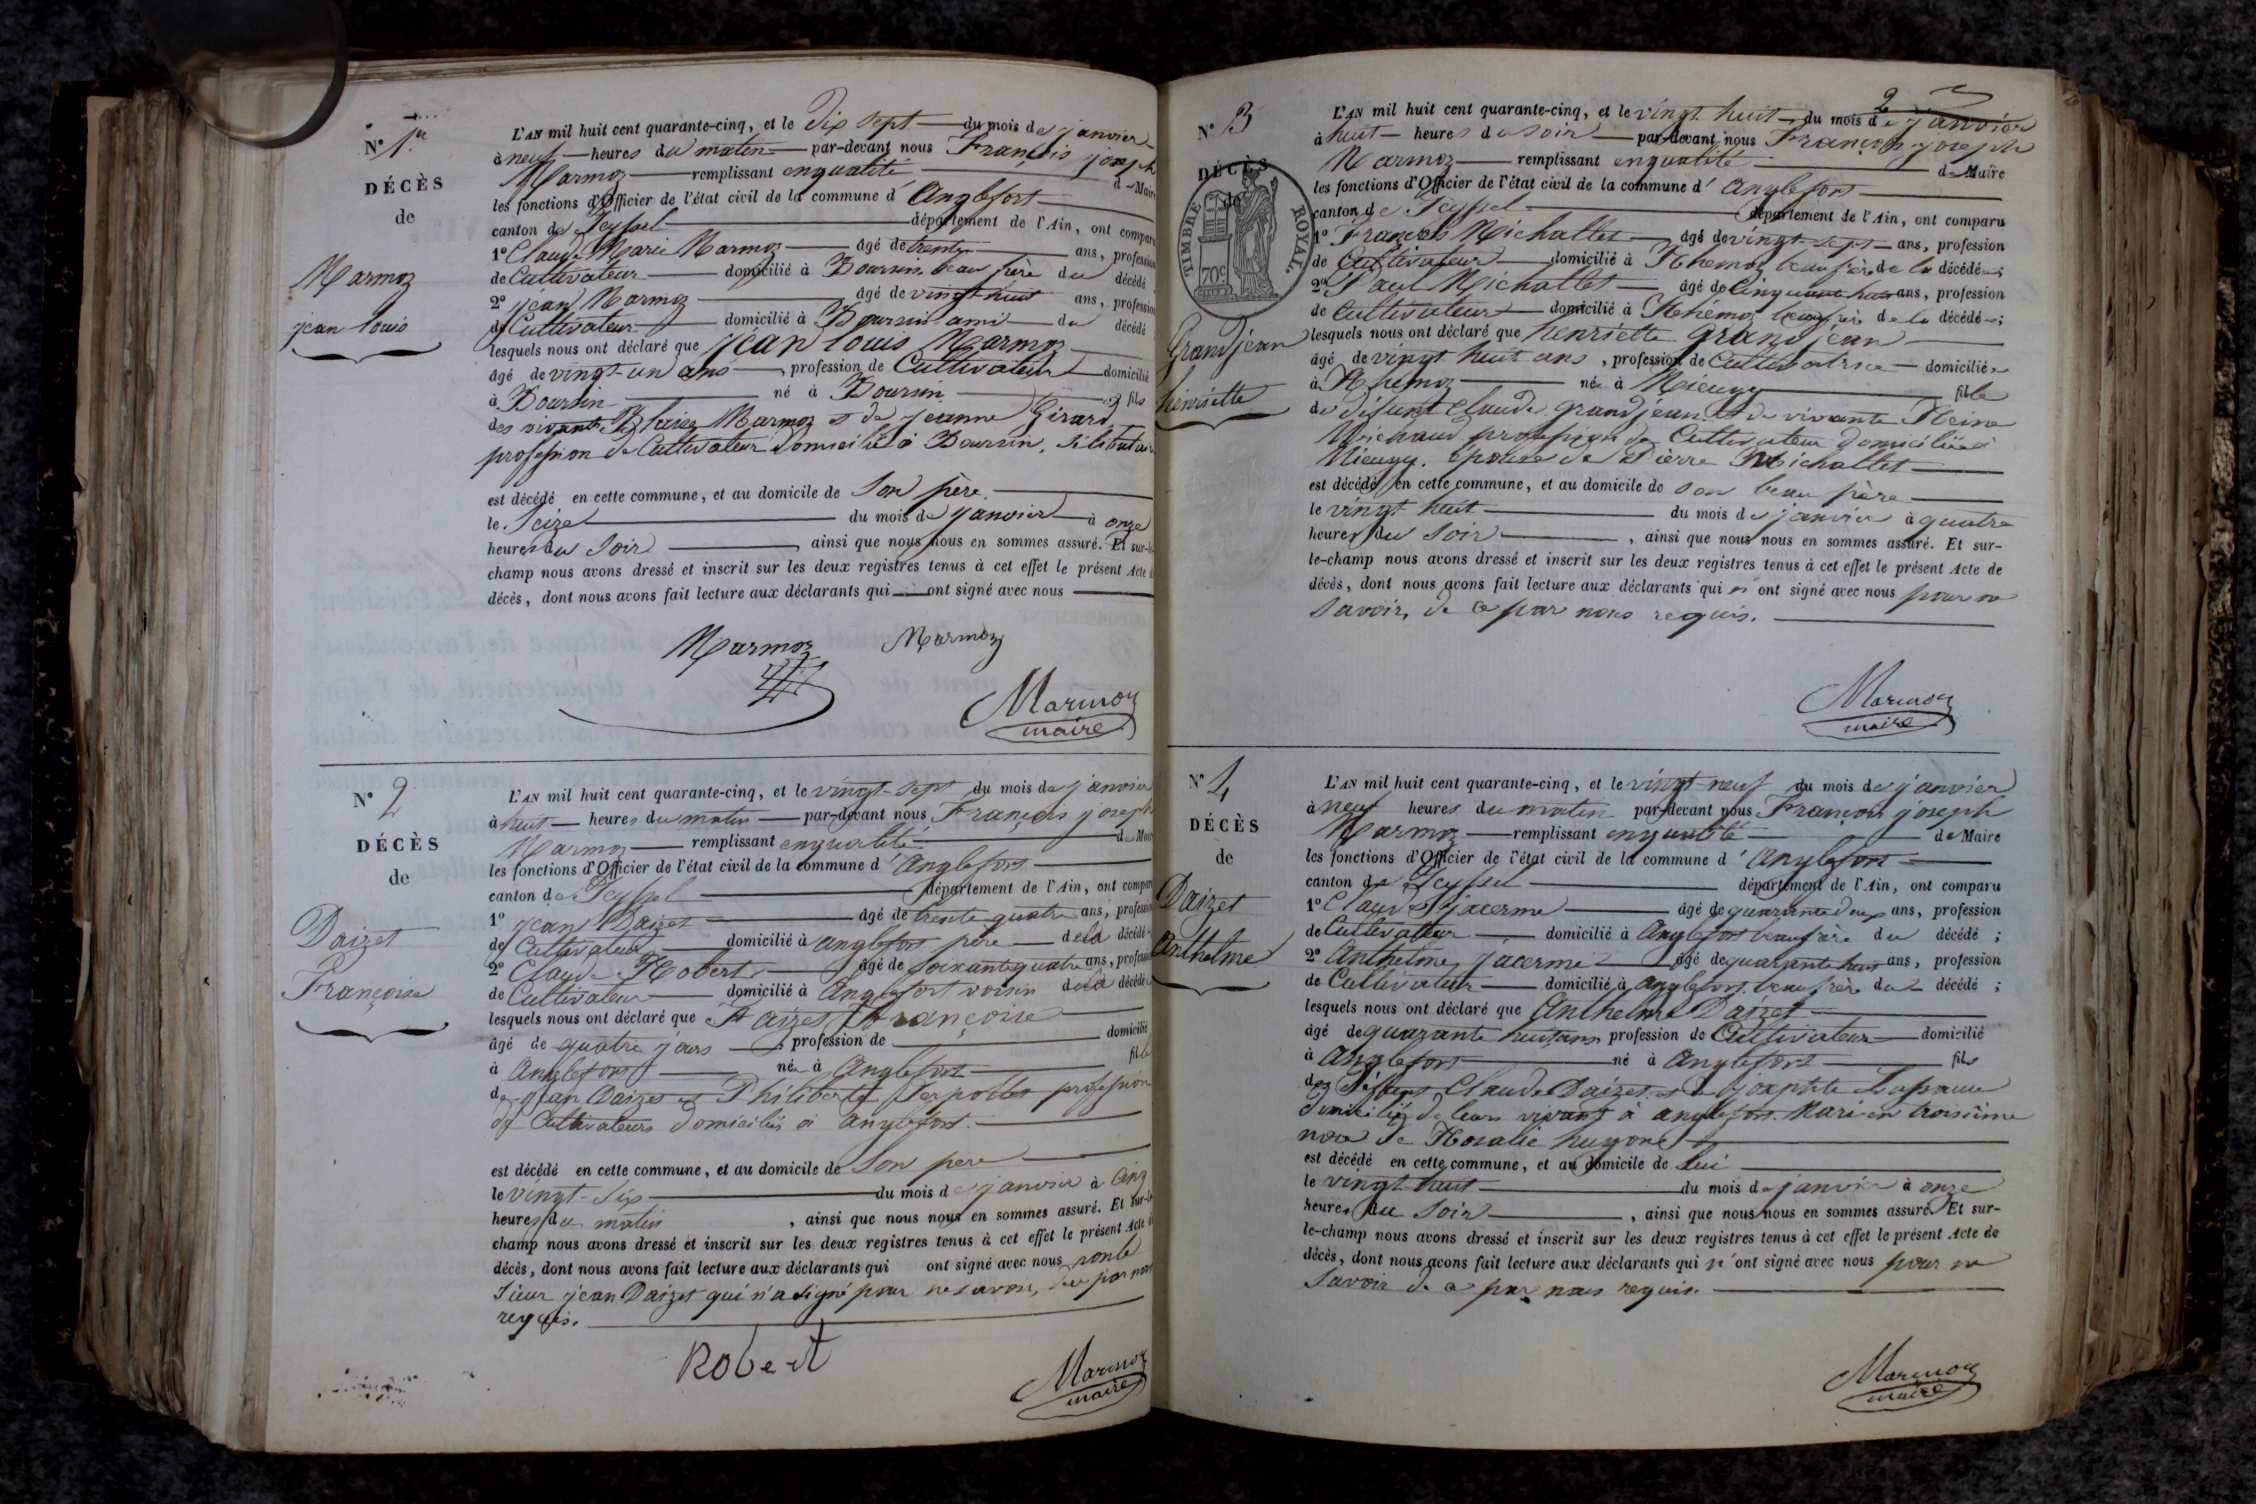 N° 1er
DÉCÈS
de
Marmoz
jean louis
L'AN mil huit cent quarante-cinq, et le dix sept du mois de janvier
à neuf heures du matin par-devant nous François joseph
Marmoz remplissant enqualité de Maire
les fonctions d'Officier de l'état civil de la commune d' Anglefort
canton de Seyssel département de l'Ain, ont comparu
1° Claude Marie Marmoz âgé de trente ans, profession
de Cultivateur domicilié à Boursin beau frère du décédé
2° jean Marmoz âgé de vingt huit ans, profession
de Cultivateur domicilié à Boursin ami du décédé
lesquels nous ont déclaré que jean louis Marmoz
âgé de vingt-un ans profession de Cultivateur domicilié
à Boursin né à Boursin fils
des vivants Blaise Marmoz et de jeanne Girard
profession de Cultivateur domicilié à Boursin.
est décédé en cette commune, et au domicile de son père.
le Seize du mois de janvier à onze
heures du soir, ainsi que nous nous en sommes assuré. Et sur-le-
champ nous avons dressé et inscrit sur les deux registres tenus à cet effet le présent Acte d
décès, dont nous avons fait lecture aux déclarants qui ont signé avec nous
Marmoz Marmoz
Marmoz
maire
N° 2
DÉCÈS
de
Daizet
Françoise
L'AN mil huit cent quarante-cinq, et le vingt-sept du mois de janvier
à huit heures du matin par-devant nous François joseph
Marmoz remplissant enqualité de Mair
les fonctions d'Officier de l'état civil de la commune d' anglefort
canton de Seyssel département de l'Ain, ont compar
1° jean Daizet âgé de trente quatre ans, profession
de Cultivateur domicilié à anglefort père de la décédé
2° Claude Robert âgé de soixante quatre ans, profession
de Cultivateur domicilié à anglefort voisin de la décédé
lesquels nous ont déclaré que Daizet Françoise
âgé de quatre jours, profession de domicilié
à Anglefort née à Anglefort fille
de jean Daizet et Philiberte profession
de Cultivateurs domiciliés à anglefort.
est décédé en cette commune, et au domicile de son père
le vingt-six du mois de janvier à cinq
heures du matin, ainsi que nous nous en sommes assuré. Et sur-le
champ nous avons dressé et inscrit sur les deux registres tenus à cet effet le présent Acte d
décès, dont nous avons fait lecture aux déclarants qui ont signé avec nous
Sieur jean Daizet qui n'a signé pour ne savoir, de ce par nous
requis.
Robert
Marmoz
maire
2
N° 3
DÉCÈS
de
TIMBRE ROYAL.
70c
Grandjean
henriette
L'AN mil huit cent quarante-cinq, et le vingt huit du mois de janvier
à huit heures du soir par-devant nous François joseph
Marmoz remplissant enqualité de Maire
les fonctions d'Officier de l'état civil de la commune d' anglefort
canton de Seyssel département de l'Ain, ont comparu
1° François Michallet âgé de vingt-sept ans, profession
de Cultivateur domicilié à Rhemoz beau frère de la décédée;
2° Paul Michallet âgé de Cinquante huit ans, profession
de Cultivateur domicilié à Rhémoz beau frère de la décédée;
lesquels nous ont déclaré que henriette grandjean
âgé de vingt huit ans, profession de Cultivatrice domiciliée
à Rhemoz née à Mieugy fille
de défunt Claude grandjean et de vivante Reine
Michaud profession de Cultivateur domiciliée à
Mieugy. épouse de Pierre Michallet
est décédé en cette commune, et au domicile de son beau père
le vingt huit du mois de janvier à quatre
heures du soir, ainsi que nous nous en sommes assuré. Et sur-
le-champ nous avons dressé et inscrit sur les deux registres tenus à cet effet le présent Acte de
décès, dont nous avons fait lecture aux déclarants qui n' ont signé avec nous pour ne
savoir, de ce par nous requis.
Marmoz
maire
N° 4
DÉCÈS
de
Daizet
Anthelme
L'AN mil huit cent quarante-cinq, et le vingt neuf du mois de janvier
à neuf heures du matin par-devant nous François joseph
Marmoz remplissant enqualité de Maire
les fonctions d'Officier de l'état civil de la commune d' Anglefort
canton de Seyssel département de l'Ain, ont comparu
1° Claude jacerme âgé de quarante deux ans, profession
de Cultivateur domicilié à Anglefort beau frère du décédé;
2° Anthelme jacerme âgé de quarante huit ans, profession
de Cultivateur domicilié à anglefort beau frère du décédé;
lesquels nous ont déclaré que Anthelme Daizet
âgé de quarante huit ans profession de Cultivateur domicilié
à anglefort né à Anglefort fils
des défunts Claude Daizet et de
domiciliés de leur vivant à anglefort. Marié en troisième
noce de Rosalie hugone
est décédé en cette commune, et au domicile de lui
le vingt huit du mois de janvier à onze
heures du soir, ainsi que nous nous en sommes assuré. Et sur-
le-champ nous avons dressé et inscrit sur les deux registres tenus à cet effet le présent Acte de
décès, dont nous avons fait lecture aux déclarants qui n' ont signé avec nous pour ne
savoir de ce par nous requis.
Marmoz
maire